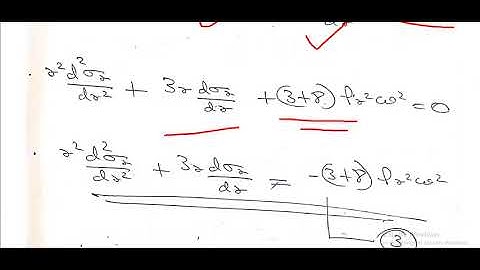 r² d²σr/dr² + 3r dσr/dr + (3+γ) ρr²ω² = 0
r² d²σr/dr² + 3r dσr/dr = -(3+γ) ρr²ω²
3